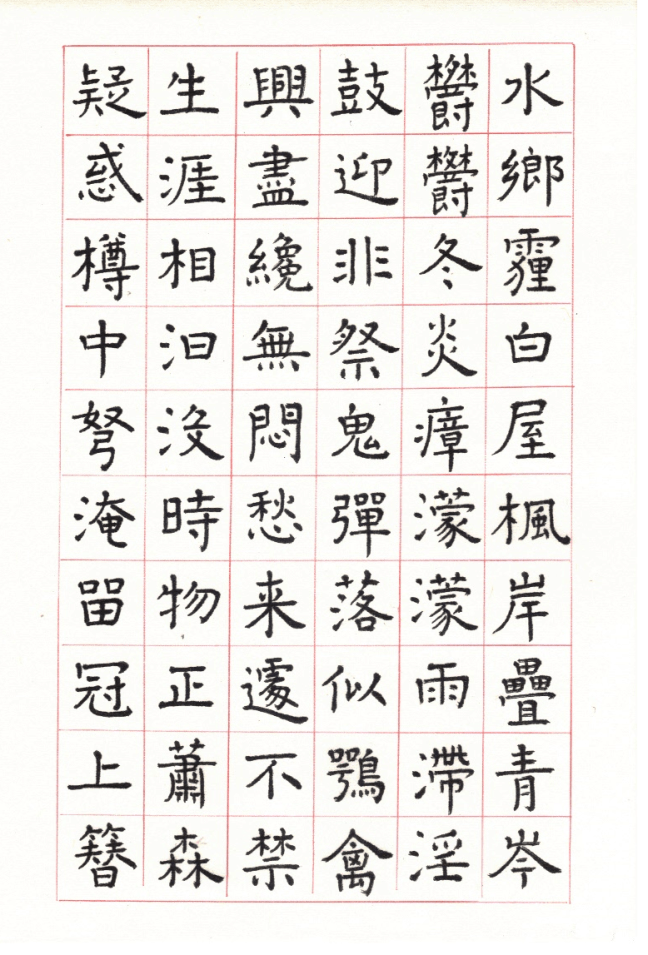 水鄉霾白屋楓岸疊青岑
欝欝冬炎瘴濛濛雨滯淫
鼓迎非祭鬼彈落似鴞禽
興盡纔無悶愁来遽不禁
生涯相汩没時物正蕭森
疑惑樽中弩淹畱冠上簪